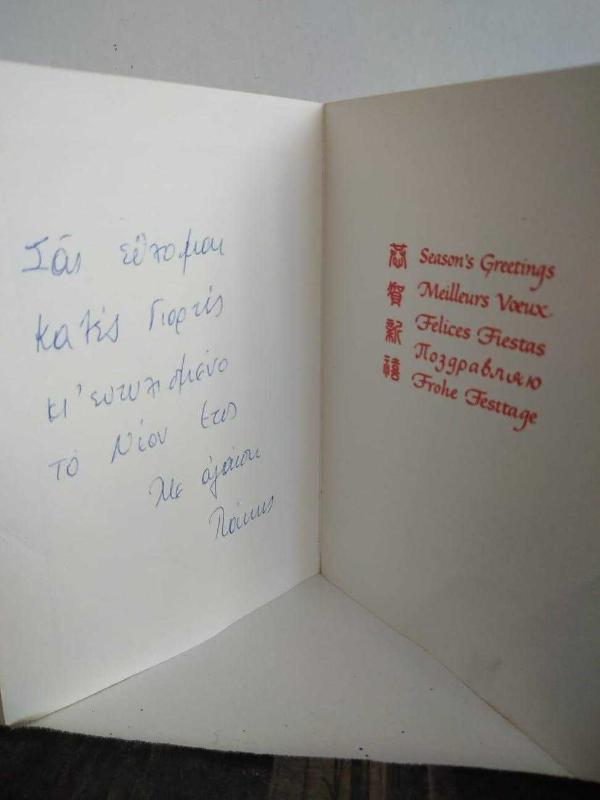 Σᾶς εὔχομαι
καλές γιορτές
κι' ευτυχισμένο
τό Νέον ἔτος
Με ἀγάπη
恭賀新禧
Season's Greetings
Meilleurs Vœux
Felices Fiestas
Поздравляю
Frohe Festtage